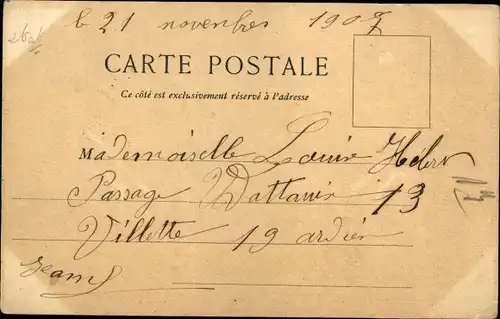 le 21 novembres 1907
CARTE POSTALE
Ce côté est exclusivement réservé à l'adresse
Mademoiselle Louise
Passage 13
Villette 19 ardier
Jean